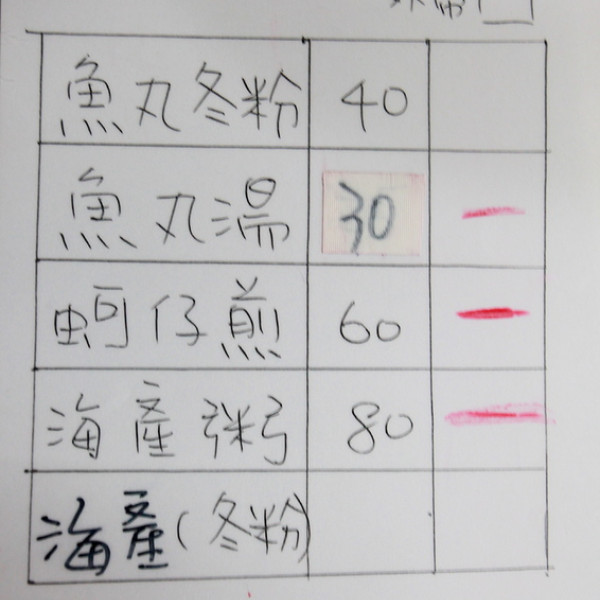 魚丸冬粉 40
魚丸湯 30 一
蚵仔煎 60 一
海產粥 80 一
海產(冬粉)